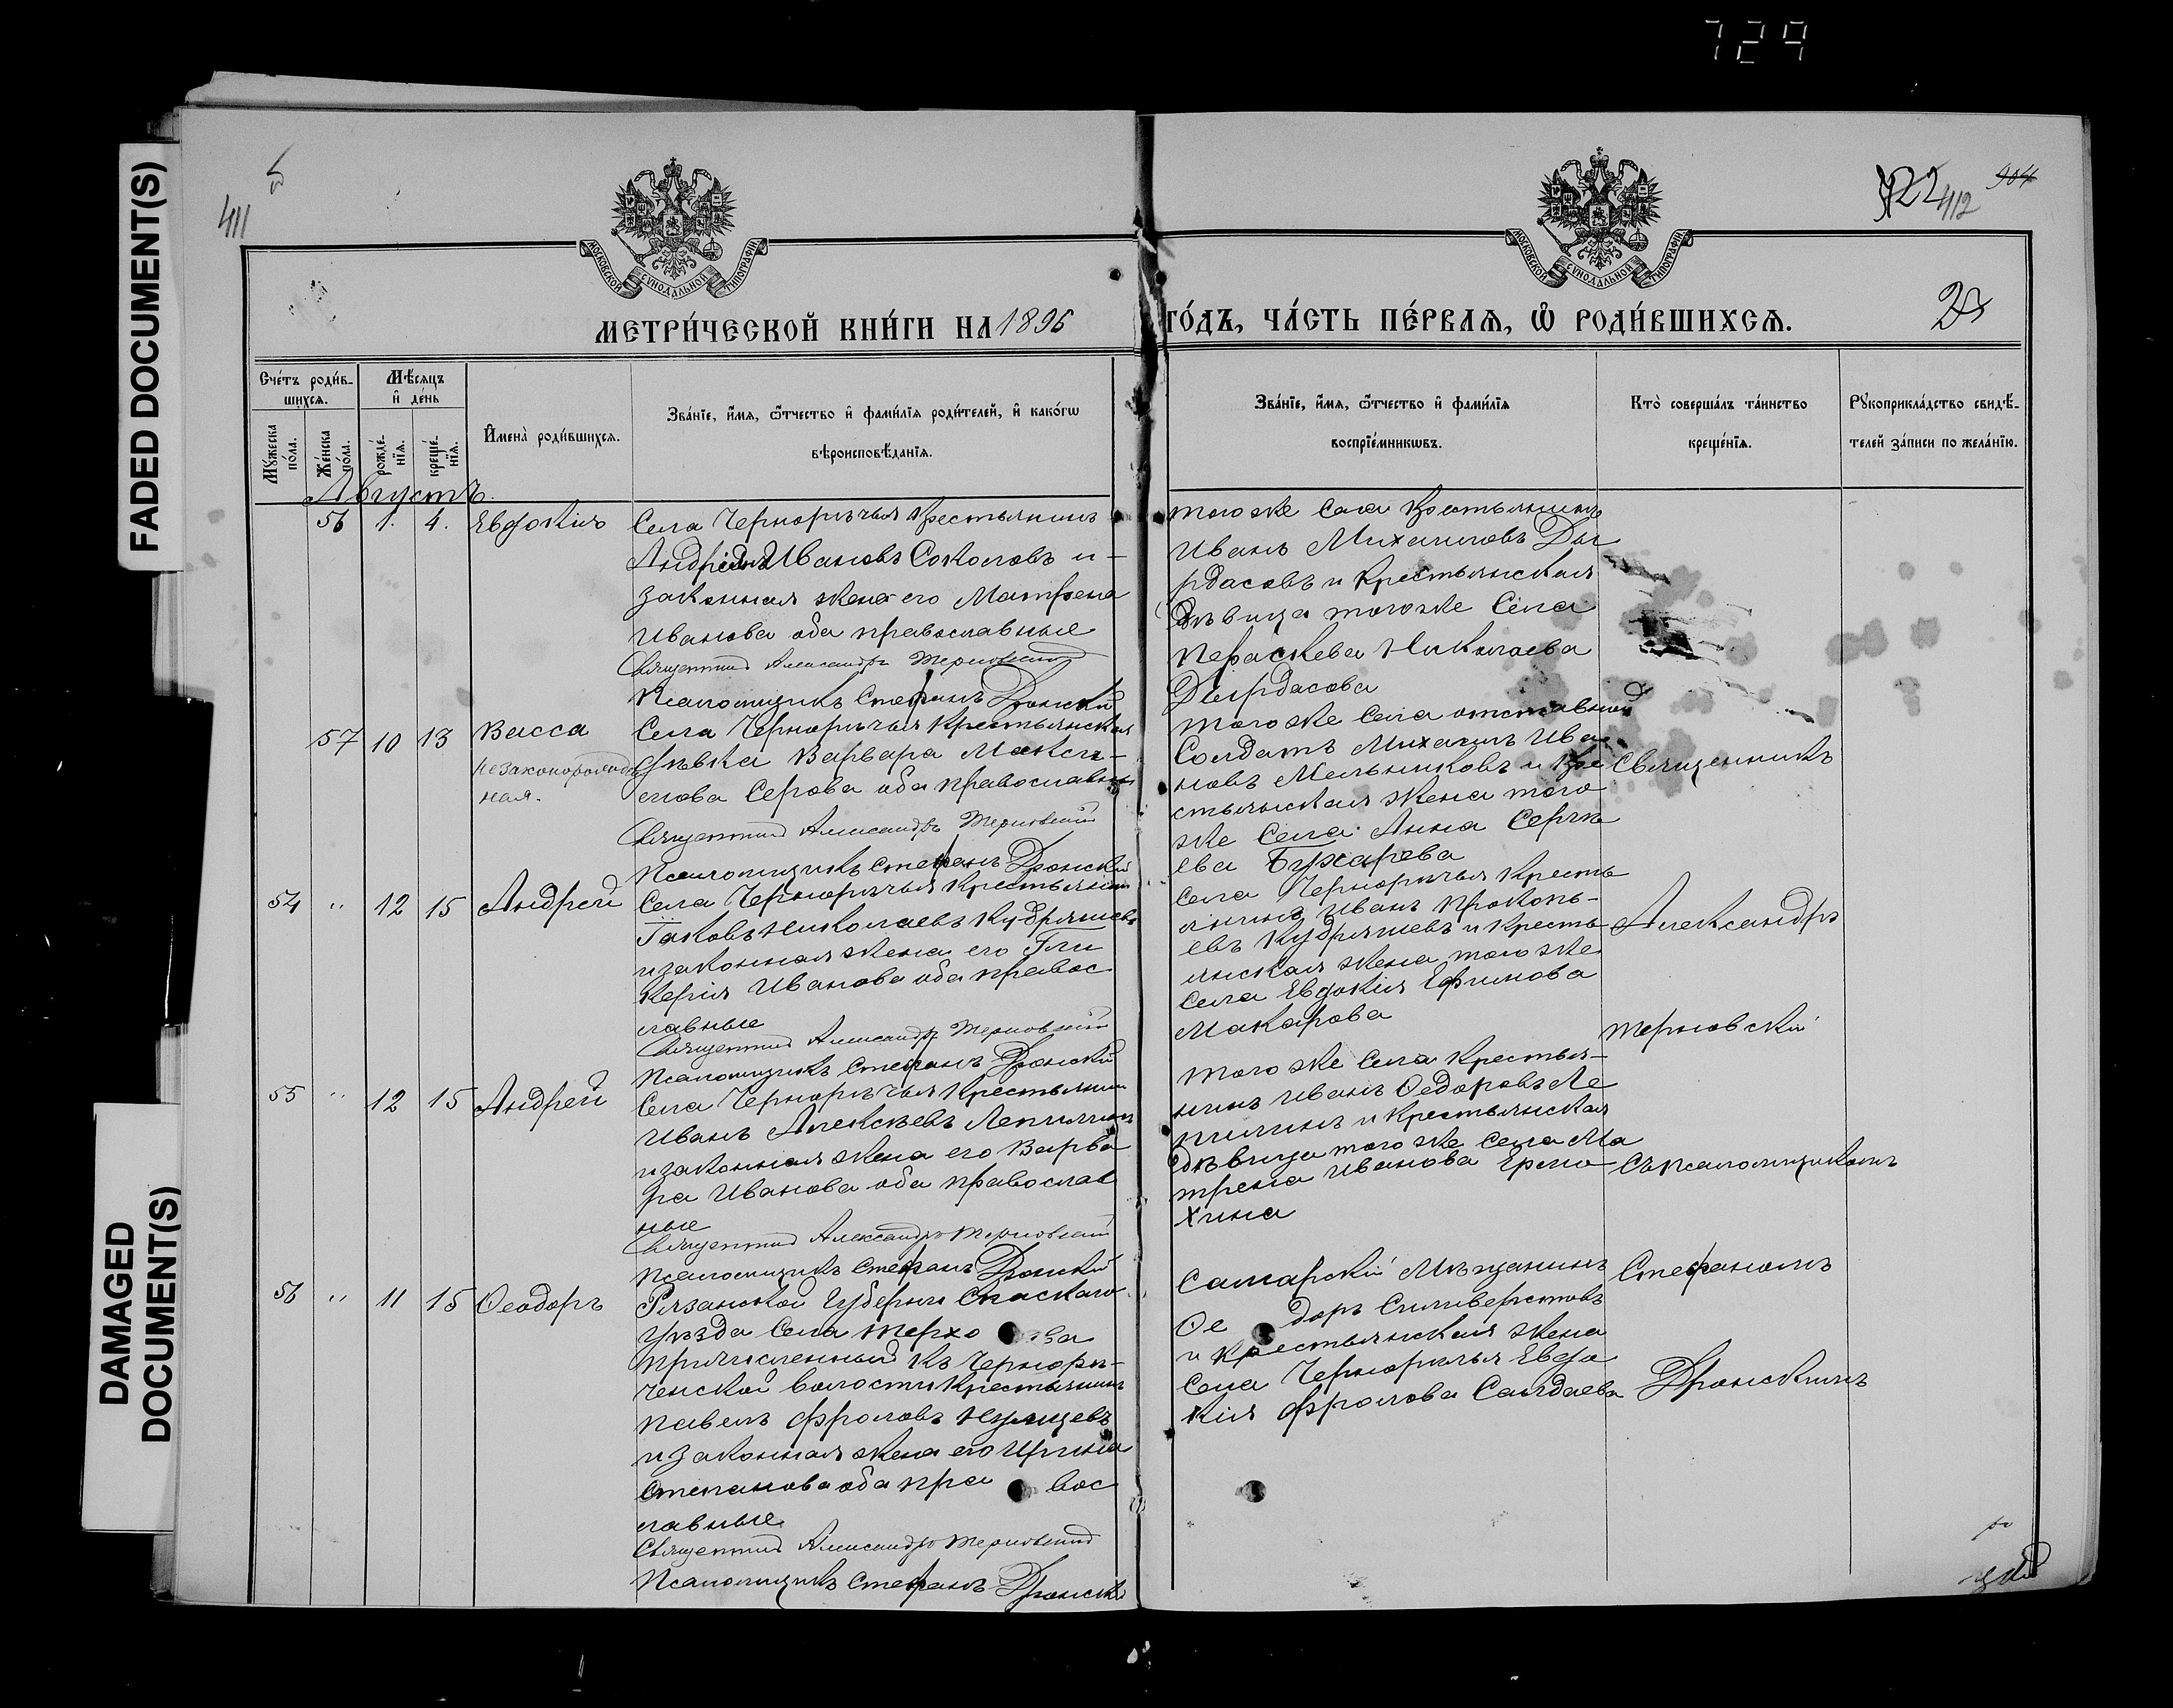 729
FADED DOCUMENT(S)
DAMAGED
DOCUMENT(S)
411
412
904
МОСКОВСКОЙ СУНОДАЛЬНОЙ ТИПОГРАФІИ
МОСКОВСКОЙ СУНОДАЛЬНОЙ ТИПОГРАФІИ
МЕТРИ́ЧЕСКОЙ КНИ́ГИ НА 1896
ГО́ДЪ, ЧА́СТЬ ПЕ́РВАЯ, Ѡ РОДИ́ВШИХСЯ.
Сче́тъ роди́в-
шихся.
Му́жеска по́ла.
Же́нска по́ла.
Мѣ́сяцъ
и҆ де́нь
рожде́-
нїя.
креще́-
нїя.
И҆мена̀ роди́вшихся.
Зва́нїе, и҆́мя, ѻ҆́тчество и҆ фами́лїя роди́телей, и҆ како́гѡ
вѣроисповѣ́данїя.
Зва́нїе, и҆́мя, ѻ҆́тчество и҆ фами́лїя
воспрїе́мникѡвъ.
Кто̀ соверша́лъ та́инство
креще́нїя.
Рꙋкоприкла́дство свидѣ́-
телей за́писи по жела́нїю.
Августъ.
56 1. 4. Евдокія
Села Чернорѣчья крестьянинъ
Андрей Ивановъ Соколовъ и -
законная жена его Матрена
Иванова оба православные
Священникъ Александръ Терновский
Псаломщикъ Стефанъ Дронский
того же села крестьянинъ
Иванъ Михайловъ Ды
рдасовъ и крестьянская
дѣвица того же села
Параскева Николаева
Дырдасова
57 10 13 Васса
незаконорожден
ная.
Села Чернорѣчья крестьянская
дѣвка Варвара Макси-
мова Серова оба православныя
Священникъ Александръ Терновский
Псаломщикъ Стефанъ Дронский
того же села отставной
солдатъ Михаилъ Ива
новъ Мельниковъ и кре
стьянская жена того
же села Анна Сергѣ
ева Бухарева
Священникъ
54 " 12 15 Андрей
Села Чернорѣчья крестьянинъ
Іаковъ Николаевъ Кудряшевъ
и законная жена его Гли
керія Иванова оба правос
лавные
Священникъ Александръ Терновский
Псаломщикъ Стефанъ Дронский
Села Чернорѣчья кресть
янинъ Иванъ Прокопь-
евъ Кудряшевъ и кресть
янская жена того же
села Евдокія Ефимова
Макарова
Александръ
Терновский
55 " 12 15 Андрей
Села Чернорѣчья крестьянинъ
Иванъ Алексѣевъ Лепилинъ
и законная жена его Варва
ра Иванова оба православ
ные
Священникъ Александръ Терновский
Псаломщикъ Стефанъ Дронский
того же села крестья-
нинъ Иванъ Ѳедоровъ Ле
пилинъ и крестьянская
дѣвица того же села Ма
трена Иванова Ермо
хина
съ псаломщикомъ
56 " 11 15 Ѳеодоръ
Рязанской губерніи Спаскаго
уѣзда села
причисленный къ Чернорѣ-
ченской волости крестьянинъ
Павелъ Фроловъ
и законная жена его Ирина
Степанова оба правос
лавные
Священникъ Александръ Терновский
Псаломщикъ Стефанъ Дронский
Самарский мѣщанинъ
Ѳедоръ Силиверстовъ
и крестьянская жена
села Чернорѣчья Евдо
кія Фролова Салдаева
Стефаномъ
Дронскимъ